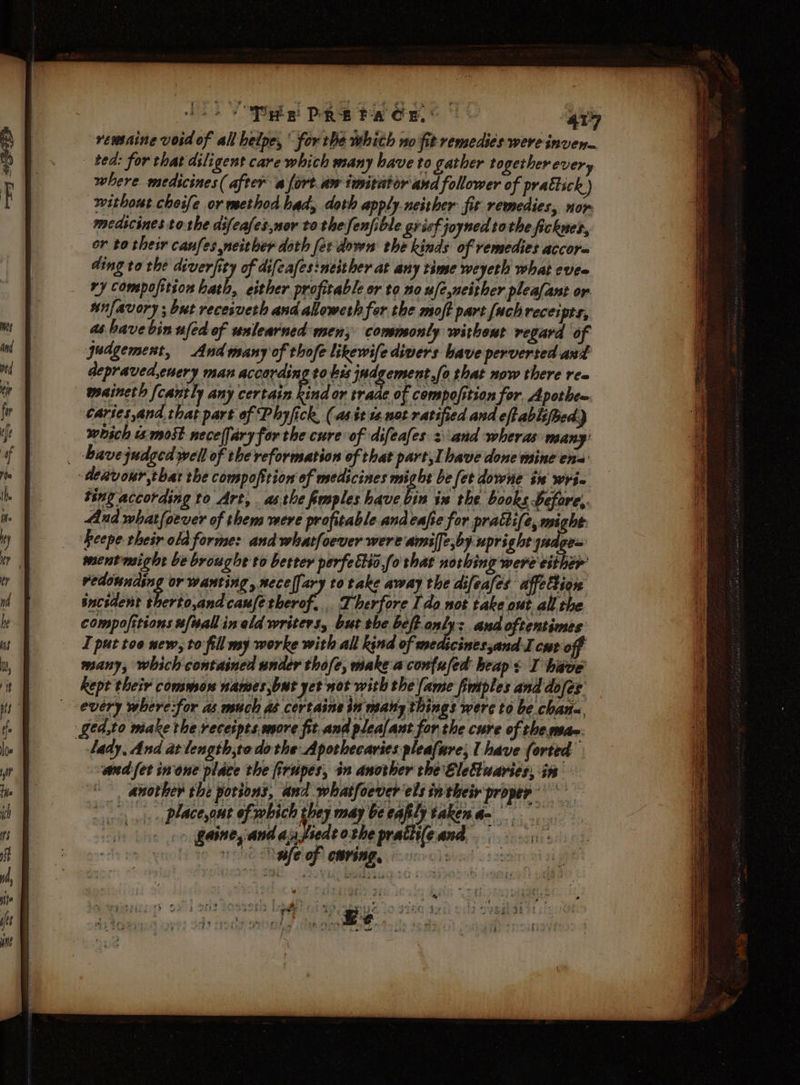 THE PREFACE. 417
remaine void of all helpe, for the which no fit remedies were inven-
ted: for that diligent care which many have to gather together every
where medicines (after a sort an imitator and follower of practick)
without choise or method had, doth apply neither fit remedies, nor
medicines to the diseases, nor to the sensible grief joyned to the sicknes,
or to their causes, neither doth set down the kinds of remedies accor-
ding to the diversity of diseases: neither at any time weyeth what eve-
ry composition hath, either profitable or to no use, neither pleasant or
unsavory; but receiveth and alloweth for the most part such receipts,
as have bin used of unlearned men, commonly without regard of
judgement, And many of those likewise divers have perverted and
depraved, every man according to his judgement, so that now there re-
maineth scantly any certain kind or trade of composition for Apothe-
caries, and that part of Physick, (as it is not ratified and established)
which is most necessary for the cure of diseases: and wheras many
have judged well of the reformation of that part, I have done mine en-
deavour, that the composition of medicines might be set downe in wri-
ting according to Art, as the simples have bin in the books before,
And whatsoever of them were profitable and easie for practise, might
keepe their old forme: and whatsoever were amisse, by upright judge-
ment might be brought to better perfection, so that nothing were either
redounding or wanting, necessary to take away the diseases affection
incident therto, and cause therof. Therfore I do not take out all the
compositions usuall in old writers, but the best only: and oftentimes
I put too new, to fill my worke with all kind of medicines, and I cut off
many, which contained under those, make a confused heap: I have
kept their common names, but yet not with the same simples and doses
every where: for as much as certaine in many things were to be chan-
ged, to make the receipts more fit and pleasant for the cure of the ma-
lady. And at length, to do the Apothecaries pleasure, I have sorted
and set in one place the sirupes, in another the Electuaries, in
another the potions, and whatsoever els in their proper
place, out of which they may be easily taken a-
gaine, and applied to the practise and
use of curing.